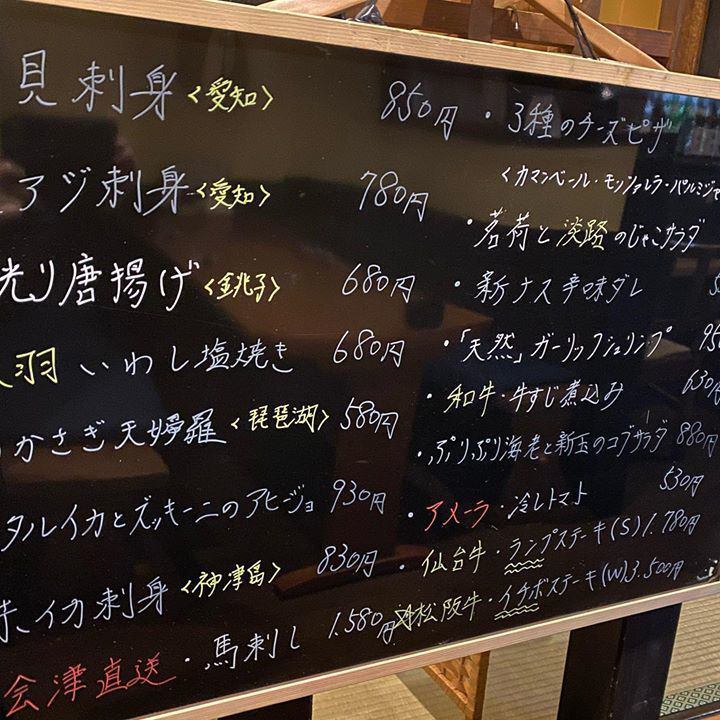 貝刺身 <愛知> 850円
アジ刺身 <愛知> 780円
光り唐揚げ <銚子> 680円
羽 いわし塩焼き 680円
かさぎ天婦羅 <琵琶湖> 580円
タルイカとズッキーニのアヒジョ 930円
イカ刺身 <神津島> 830円
会津直送・馬刺し 1.580円
・3種のチーズピザ
<カマンベール・モッツァレラ・パルミジャ
・茗荷と淡路のじゃこサラダ
・新ナス辛味ダレ
・「天然」ガーリックシュリンプ 950
・和牛・牛すじ煮込み 630円
・ぷりぷり海老と新玉のコブサラダ 880円
・アメーラ・冷しトマト 530円
・仙台牛・ランプステーキ(S) 1.780円
松阪牛・イチボステーキ(W) 3.500円